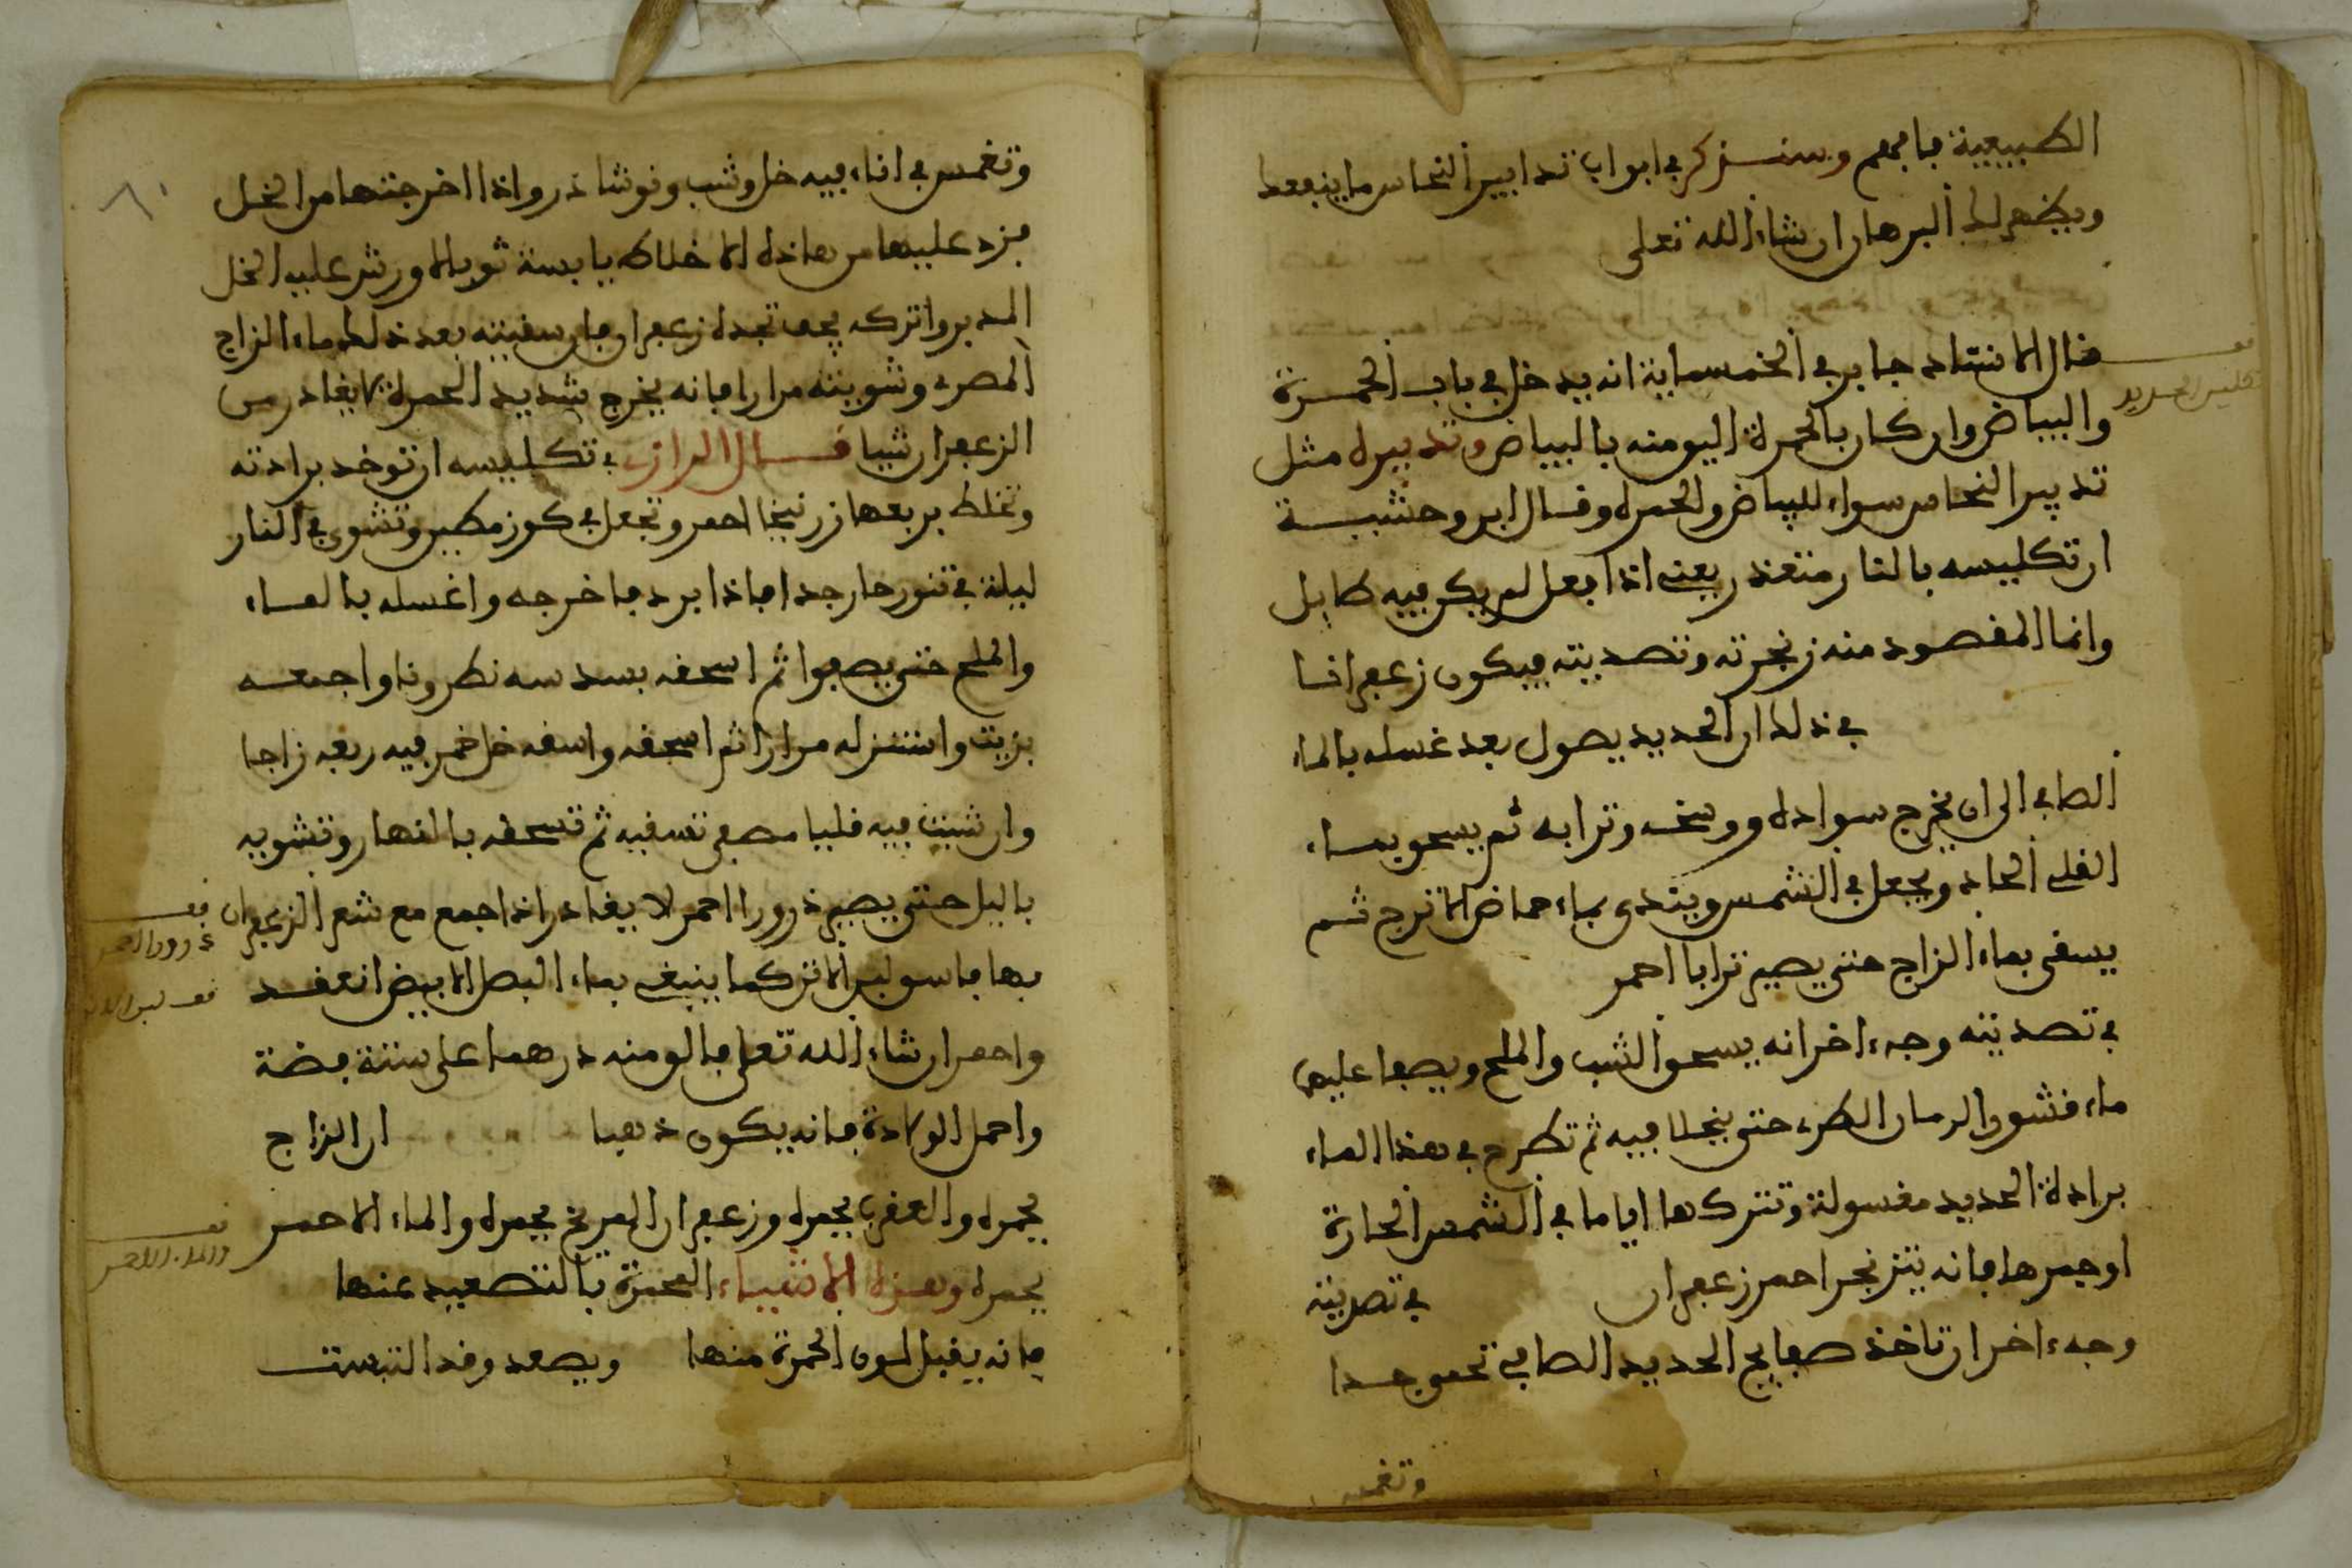 الطبيعية فافهم وسنذكر في ابواب تدابير النحاس ما ينفعك
ويظهر لك البرهان ان شاء الله تعلى
قال الاستاد جابر في الخمسماية انه يدخل في باب الحمرة
تكليس الحديد
والبياض وان كان بالحمرة اليق منه بالبياض وتدبيره مثل
تدبير النحاس سواء للبياض والحمره وقال ابن وحشية
ان تكليسه بالنار متعذر يعني اذا فعل لم يكن فيه طايل
وانما المقصود منه زنجرته وتصديته فيكون زعفرانا
في ذلك ان الحديد يصول بعد غسله بالماء
الصافي الى ان يخرج سواده ووسخه وترابه ثم يسحق بماء
القلي الحاد ويجعل في الشمس ويندى بماء حماض الاترج ثم
يسقى بماء الزاج حتى يصير ترابا احمر
في تصديته وجه اخر انه يسحق الشب والملح ويصب عليها
ماء قشور الرمان الطري حتى ينحلا فيه ثم تطرح في هذا الماء
برادة الحديد مغسولة وتتركها اياما في الشمس الحارة
او جمرها فانه يتزنجر احمر زعفران في تصديته
وجه اخر ان تاخذ صفايح الحديد الصافي تحمى جدا
وتغمس
وتغمس في اناء فيه خل وشب ونوشاذر واذا اخرجتها من الخل
فزد عليها من هاذه الاخلاط يابسة ثوبالا ورش عليه الخل
المدبر واتركه يجف تجده زعفران فان سقيته بعد ذلك ماء الزاج
المصري وشويته مرارا فانه يخرج شديد الحمرة لا يغادر من
الزعفران شيا قال الرازي في تكليسه ان توخذ برادته
وتخلط بربعها زرنيخا احمر وتجعل في كوز مطين وتشوى في النار
ليلة في تنور حار جدا فاذا برد فاخرجه واغسله بالماء
والملح حتى يصفوا ثم اسحقه بسدسه نطرونا واجمعه
بزيت واستنزله مرارا ثم اسحقه واسقه خل خمر فيه ربعه زاجا
وان شيت فيه قليا مصفى تسقيه ثم تسحقه بالنهار وتشويه
باليل حتى يصير ذرورا احمر لا يغادر اذا جمع مع شعر الزعفران
ذرور احمر
بها فاسق لبن الاترك كما ينبغي بماء البصل الابيض انعقد
واحمر ان شاء الله تعلى فالق منه درهما على ستة فضة
واحمل الولادة فانه يكون ذهبا ان الزاج
يحمره والعقرب يحمره وزعفران المريخ يحمره والماء الاحمر
والماء الاحمر
يحمره وهذه الاشياء المحمرة بالتصعيد عنها
فانه يقبل لون الحمرة منها ويصعد وقد التبست